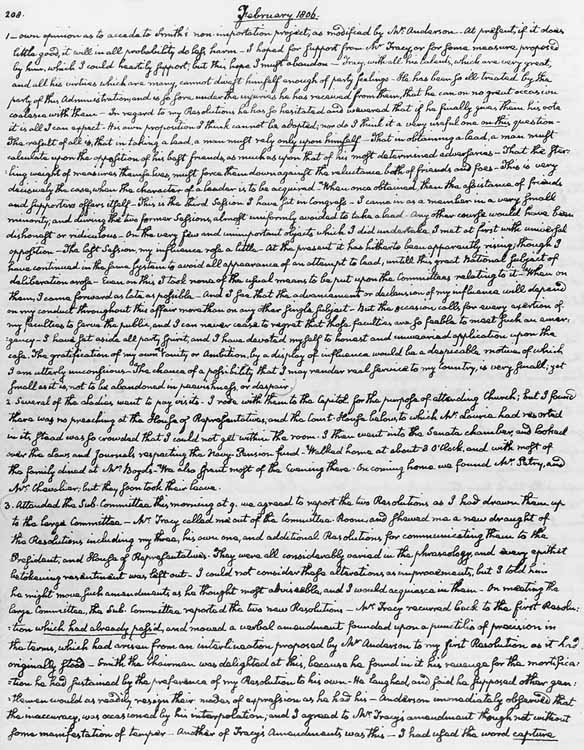 208.
February 1806.
1 - own opinion as to accede to Smith's non-importation project; as modified by Mr. Anderson. At present, if it does
little good, it will in all probability do less harm - I hoped for support from Mr Tracy, or for some measure proposed
by him, which I could heartily support; but this hope I must abandon - Tracy, with all his talents, which are very great,
and all his virtues which are many, cannot divest himself enough of party feelings - He has been so ill treated by the
party of this Administration, and is so sore under the injuries he has received from them, that he can on no great occasion
coalesce with them - In regard to my Resolutions he has so hesitated and wavered that if he finally gives them his vote
it is all I can expect - His own proposition I think cannot be adopted; nor do I think it a very useful one on this question -
The result of all is, that in taking a lead, a man must rely only upon himself - That in obtaining a lead, a man must
calculate upon the opposition of his best friends, as much as upon that of his most determined adversaries - That the ster-
ling weight of measures themselves, must force them down against the reluctance both of friends and foes - This is very
decisively the case, when the character of a leader is to be acquired. When once obtained, then the assistance of friends
and supporters offers itself - This is the third Session I have sat in Congress - I came in as a member in a very small
minority, and during the two former Sessions, almost uniformly avoided to take a lead - Any other course would have been
dishonest or ridiculous - On the very few and unimportant objects which I did undertake, I met at first with universal
opposition - The last Session, my influence rose a little - At the present it has hitherto been apparently rising; though I
have continued in the same system to avoid all appearance of an attempt to lead, untill this great National subject of
deliberation arose - Even on this I took none of the usual means to be put upon the Committees relating to it - When on
them, I came forward as late as possible - And I see that the advancement or declension of my influence will depend
on my conduct throughout this affair more than on any other single subject - But the occasion calls for every exertion of
my faculties to serve the public, and I can never cease to regret that those faculties are so feeble to meet such an emer-
gency - I have set aside all party spirit, and I have devoted myself to honest and unwearied application upon the
case. The gratification of my own vanity or Ambition, by a display of influence would be a despicable motive, of which
I am utterly unconscious. The chance of a possibility that I may render real service to my country, is very small; yet
small as it is, not to be abandoned in peevishness, or despair.
2. Several of the Ladies went to pay visits - I rode with them to the Capitol for the purpose of attending Church; but I found
there was no preaching at the House of Representatives, and the Court-House below, to which Mr. Laurie had resorted
in its stead was so crowded that I could not get within the room - I then went into the Senate chamber, and looked
over the Laws, and Journals respecting the Navy-Pension fund - Walked home at about 3 O'Clock, and with most of
the family dined at Mr. Boyd's - We also spent most of the Evening there - On coming home we found Mr. Petry, and
Mr. Chevalier; but they soon took their leave.
3. Attended the Sub-Committee this morning at 9. we agreed to report the two Resolutions as I had drawn them up
to the large Committee - Mr. Tracy called me out of the Committee-Room, and shewed me a new draught of
the Resolutions including my three, his own one, and additional Resolutions for communicating them to the
President, and House of Representatives. They were all considerably varied in the phraseology, and every epithet
betokening resentment was left out - I could not consider these alterations as improvements, but I told him
he might move such amendments as he thought most advisable, and I would acquiesce in them - On meeting the
large Committee, the Sub-Committee reported the two new Resolutions - Mr. Tracy recurred back to the first Resolu-
-tion which had already pass'd, and moved a verbal amendment founded upon a punctilio of precision in
the terms, which had arisen from an interlineation proposed by Mr Anderson to my first Resolution as it had
originally stood - Smith the Chairman was delighted at this, because he found in it his revenge for the mortifica-
-tion he had sustained by the preference of my Resolution to his own - He laughed, and said he supposed other gen-
-tlemen would as readily resign their modes of expression as he had his - Anderson immediately observed that
the inaccuracy, was occasioned by his interpolation, and I agreed to Mr Tracy's amendment though not without
some manifestation of temper - Another of Tracy's Amendments was this - I had used the word capture